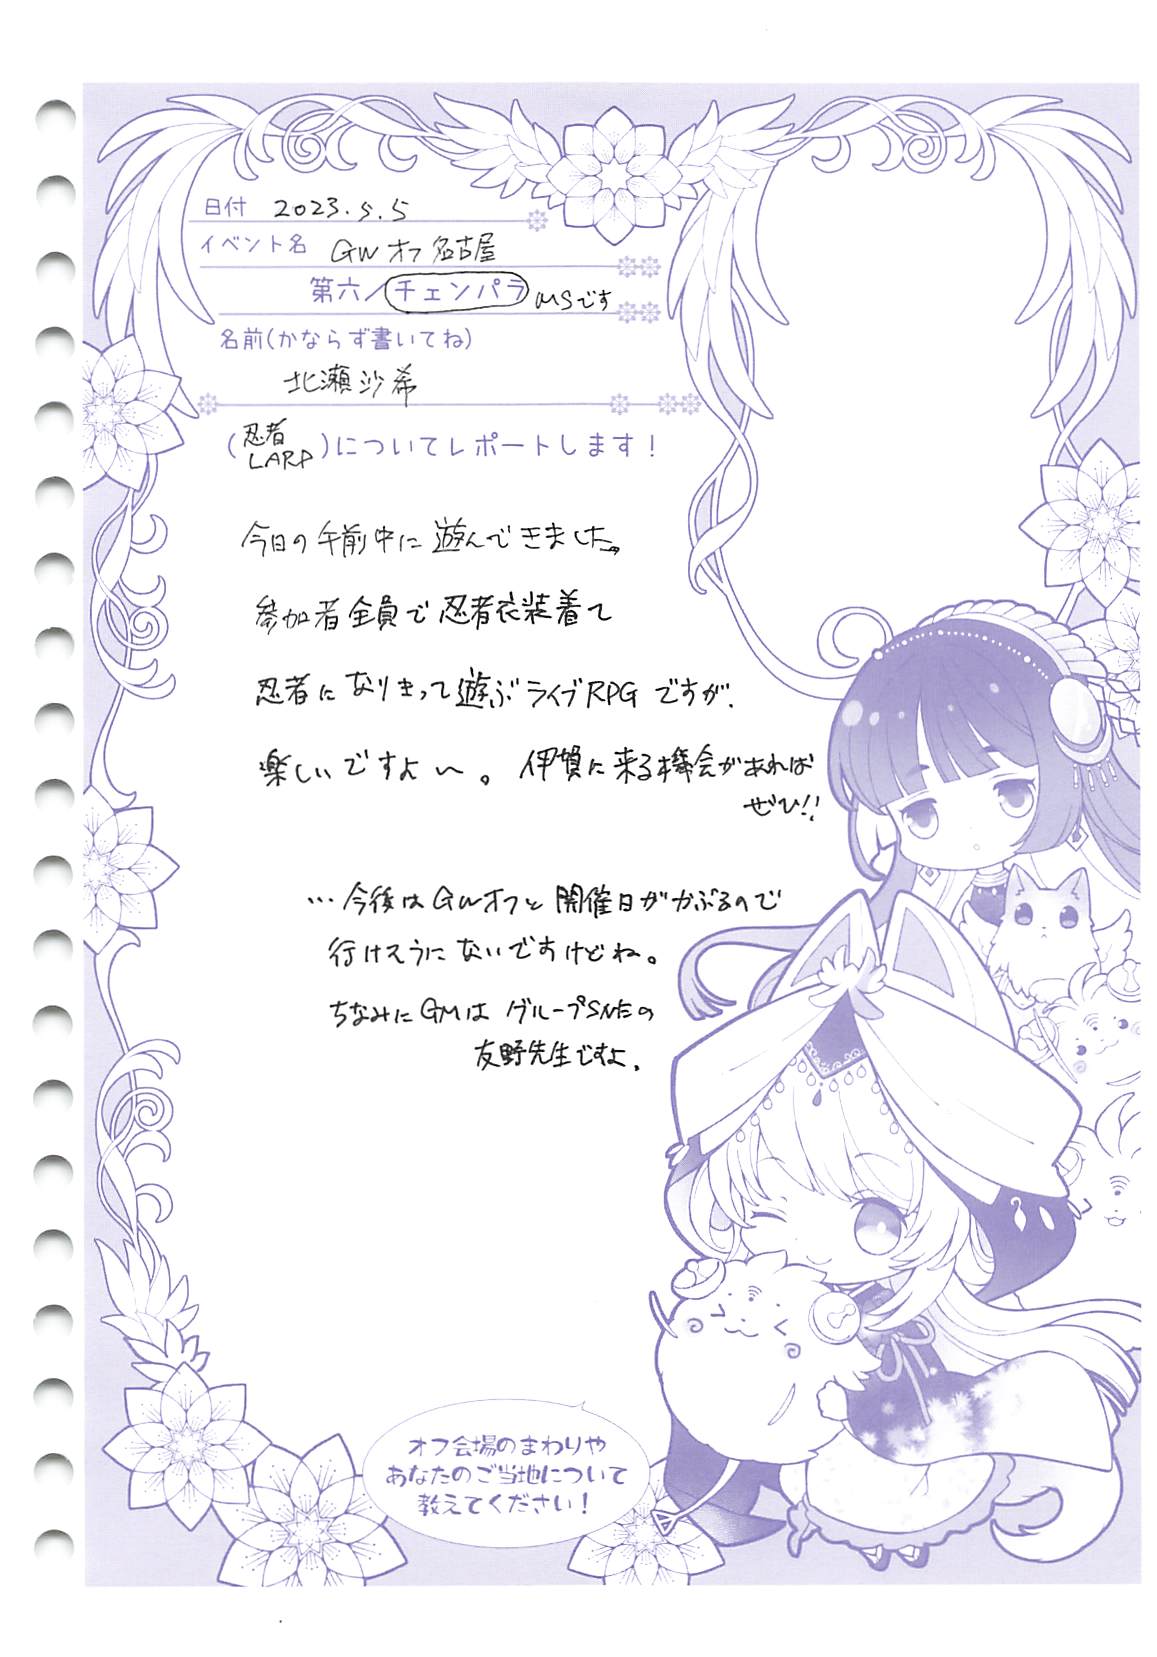 日付 2023.5.5
イベント名 GWオフ名古屋
第六/チェンパラ MSです
名前(かならず書いてね)
北瀬沙希
(忍者LARP)についてレポートします!
今日の午前中に遊んできました。
参加者全員で忍者衣装着て
忍者になりきって遊ぶライブRPGですが、
楽しいですよ〜。伊賀に来る機会があれば
ぜひ!!
…今後はGWオフと開催日がかぶるので
行けそうにないですけどね。
ちなみにGMはグループSNEの
友野先生ですよ。
オフ会場のまわりや
あなたのご当地について
教えてください!